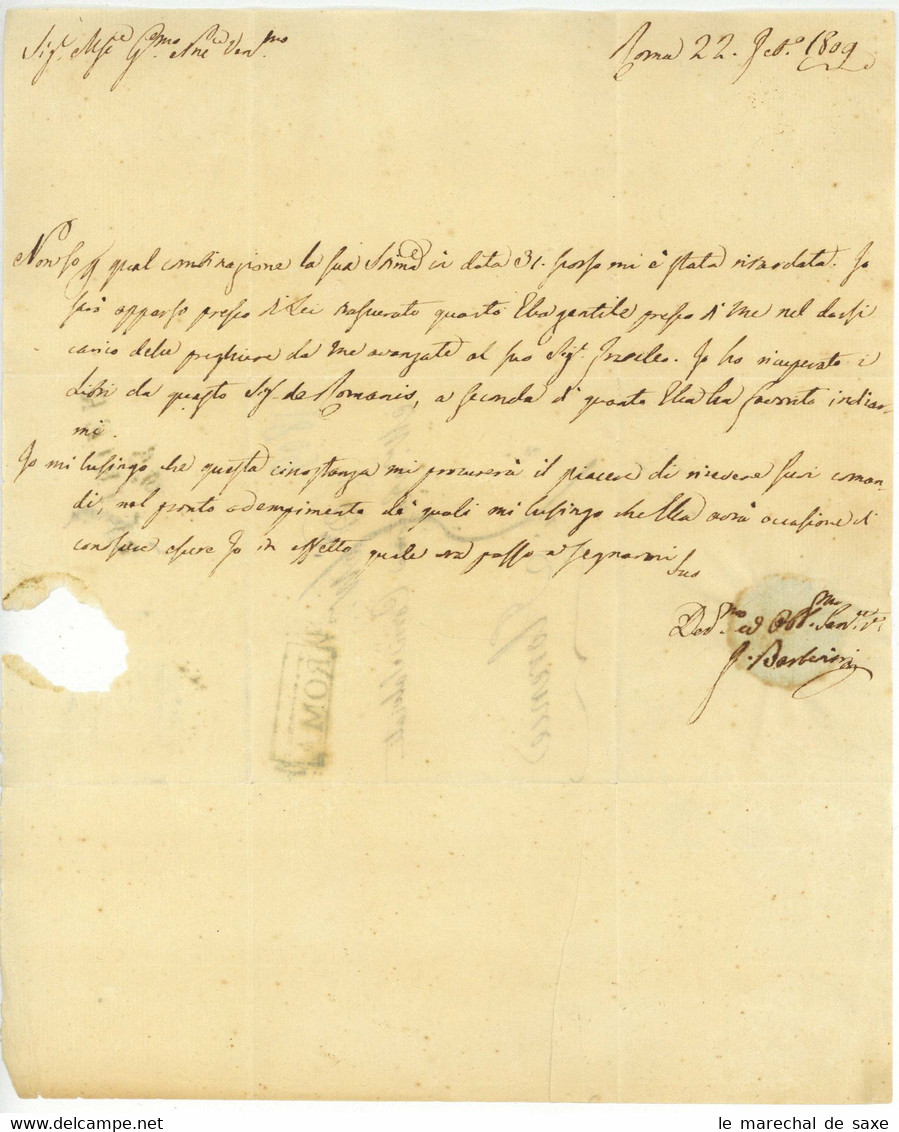 Sig.r Mse Gmo Pne Ven.mo
Roma 22. Feb.o 1809
Non so p qual combinazione la sua Stima in data 31. scorso mi è stata ritardata. Io
sarò apparso presso di Lei trascurato quanto Ella gentile presso di me nel darsi
carico delle preghiere da me avanzate al suo Sig.r Fratello. Io ho ricuperato i
Libri da questo Sig. de Romanis, a seconda di quanto Ella ha favorito indicar-
mi.
Io mi lusingo che questa circostanza mi procurerà il piacere di ricevere suoi coman-
di, nel pronto adempimento de quali mi lusingo che Ella avrà occasione di
conoscere essere Io in effetto quale ora passo a segnarmi
Suo
Dev.mo ed Obb.mo Serv.re
F. Barberini
ROMA
le marechal de saxe